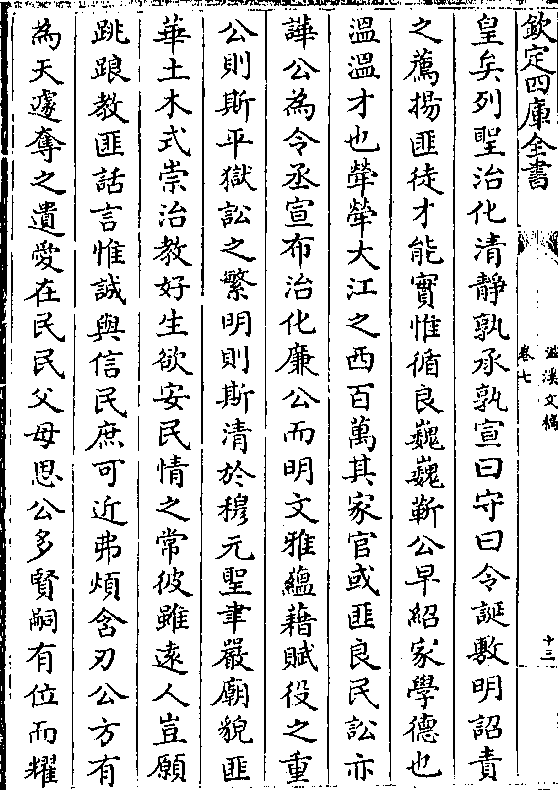 欽定四庫全書
滋溪文稿
卷七
十三
皇矣列聖治化清靜孰承孰宣曰守曰令誕敷明詔責
之薦揚匪徒才能實惟循良巍巍靳公早紹家學德也
溫溫才也犖犖大江之西百萬其家官或匪良民訟亦
譁公為令丞宣布治化廉公而明文雅蘊藉賦役之重
公則斯平獄訟之繁明則斯清於穆元聖聿嚴廟貌匪
華土木式崇治教好生欲安民情之常彼雖遠人豈願
跳踉教匪話言惟誠與信民庶可近弗煩含刃公方有
為天遽奪之遺愛在民民父母思公多賢嗣有位而耀